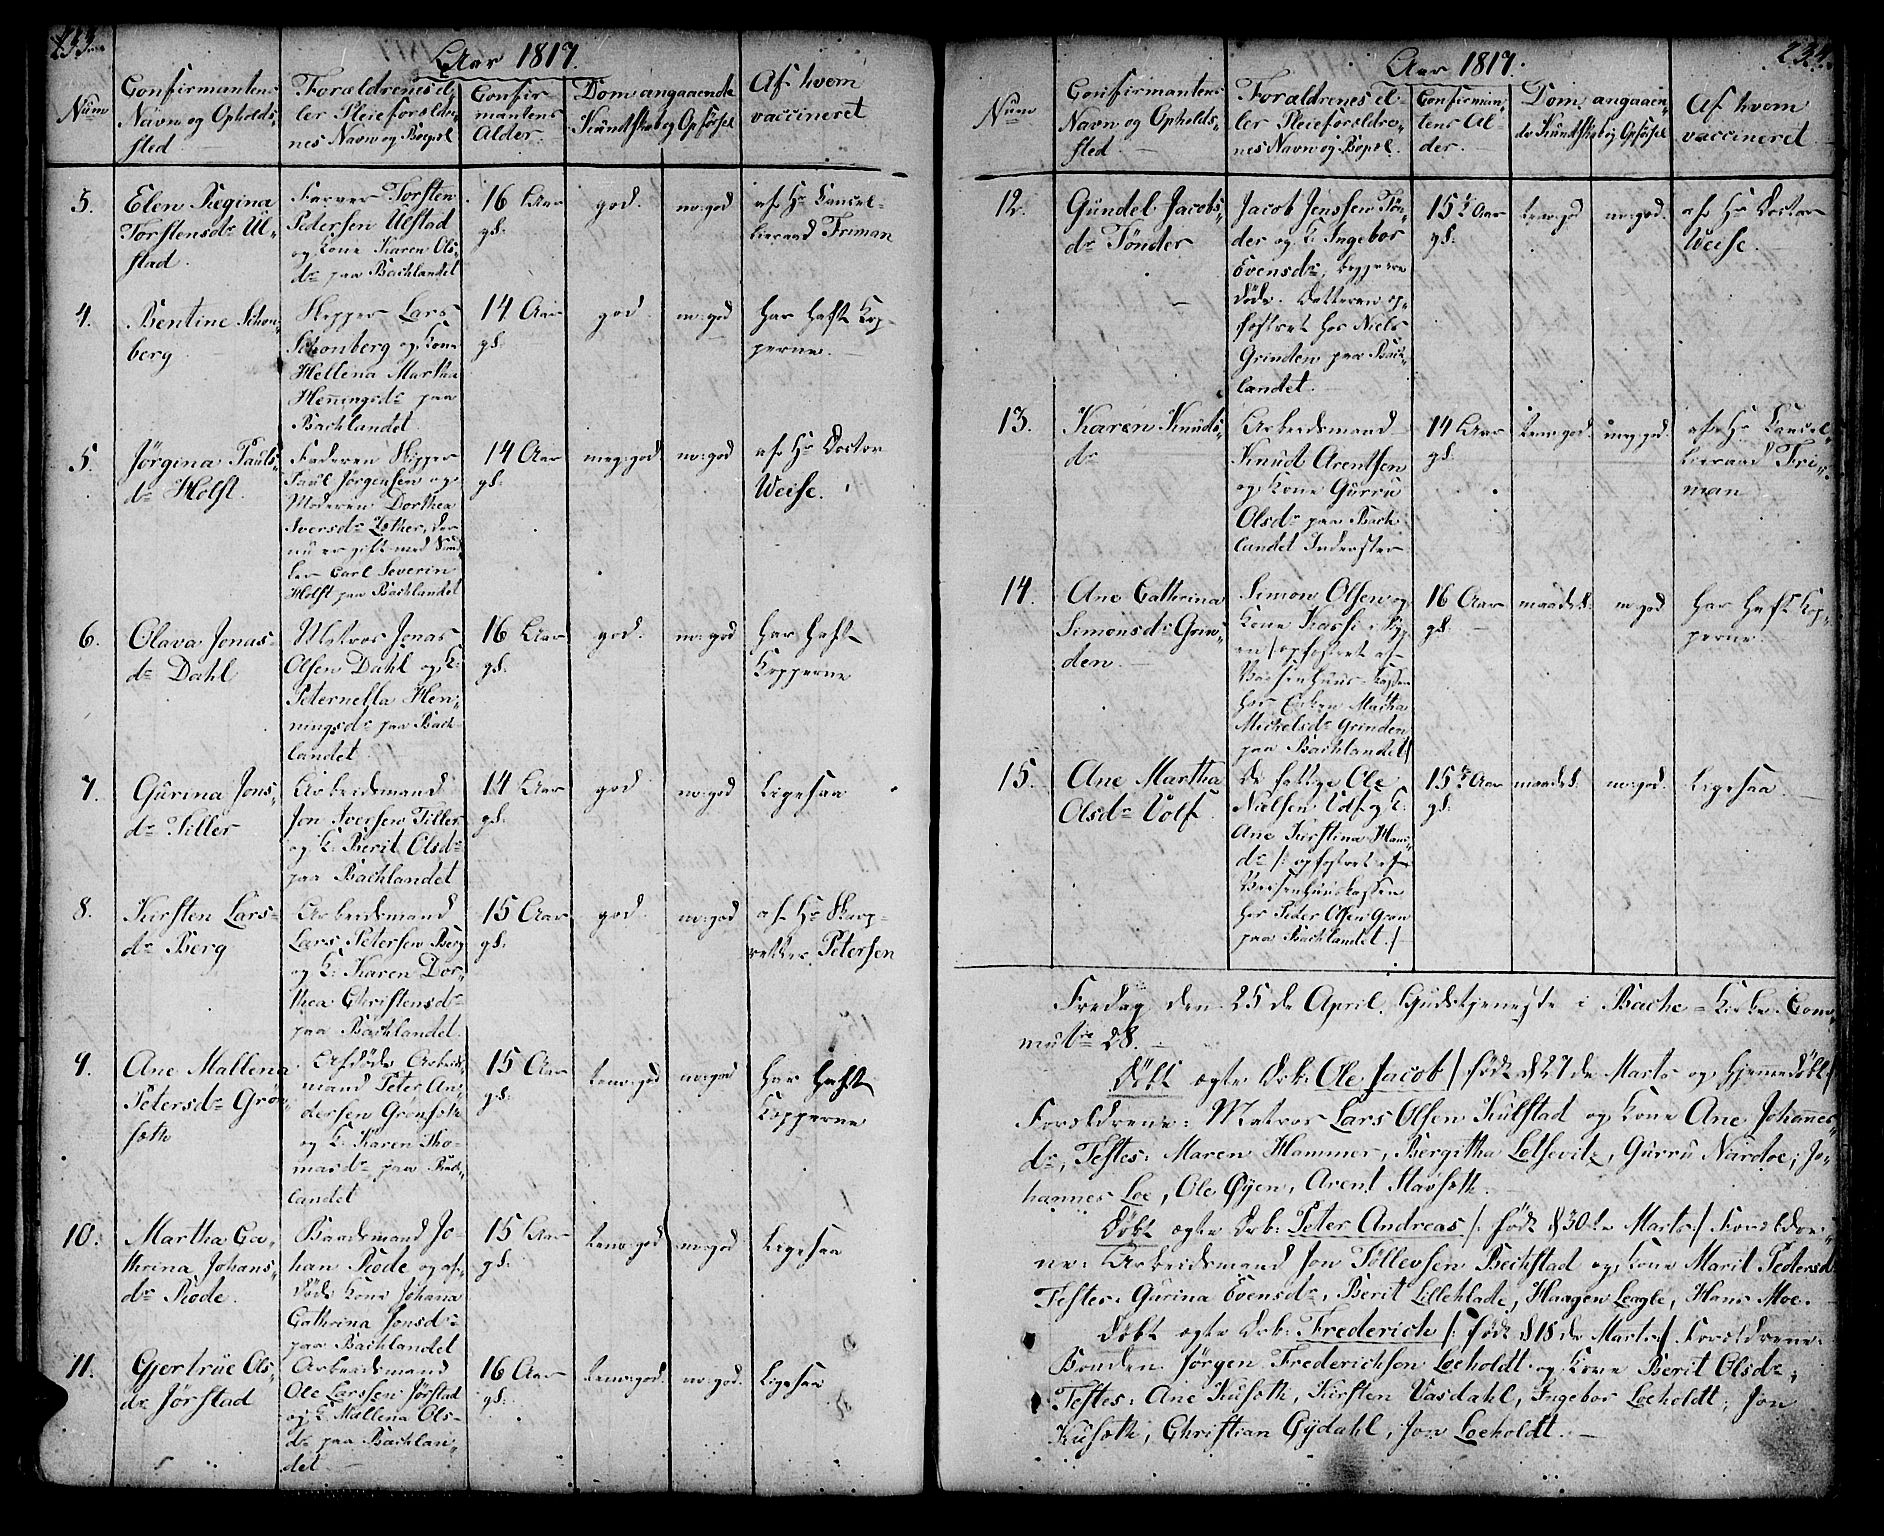 233.
Aar 1817.
Num
Confirmantens
Navn og Opholds-
sted
Forældrenes el-
ler Pleieforældre-
nes Navn og Bopæl
Confir-
mantens
Alder.
Dom angaaende
Kundskab og Opførsel
Af hvem
vaccineret
3.
Elen Regina
Torstensdr Ul-
stad.
Farver Torsten
Pedersen Ulstad
og Kone Karen Ols-
dr paa Bachlandet
16 Aar
gl:
god.
no: god
af Hr Cancel-
lieraad Friman
4.
Bentine Schon-
berg
Skipper Lars
Schonberg og Kone
Hellena Martha
Heningsdr paa
Bachlandet.
14 Aar
gl:
god
no: god
har haft Kop-
perne.
5.
Jörgina Pauls-
dr Holst.
Faderen Skipper
Paul Jörgensen og
Moderen Dorthea
Iversdr Lother, der
nu er gift med
Carl Severin
Holst paa Bachlandet
14 Aar
gl:
meg: god
no: god
af Hr Doctor
Weise.
6.
Olava Jonas-
dr Dahl
Matros Jonas
Olsen Dahl og K:
Peternella Hen-
ningsdr paa Bach-
landet
16 Aar
gl:
god.
no: god
har haft
Kopperne
7.
Gurina Jons-
dr Tiller
Arbeidsmand
Jon Iversen Tiller
og K: Berit Olsdr
paa Bachlandet
14 Aar
gl:
god
no: god
Ligesaa
8.
Kirsten Lars-
dr Berg
Arbeidsmand
Lars Petersen Berg
og K: Karen Dor-
thea Christensdr
paa Bachlandet.
15 Aar
gl:
god.
no: god
af Hr Skarp-
retter Petersen
9.
Ane Mallena
Petersdr Grön-
sæth
Afdöde Arbeids-
mand Peter An-
dersen Grönsæth
og K: Karen Tho-
masdr paa Bach-
landet
15 Aar
gl:
temo: god
no: god
har haft
Kopperne
10.
Martha Ca-
thrina Johans-
dr Rode.
Baadsmand Jo-
han Rode og af-
döde Kone Johana
Cathrina Jonsdr
paa Bachlandet
15 Aar
gl:
temo: god
no: god
Ligesaa
11.
Gjertrue Ols-
dr Jörstad
Arbeidsmand
Ole Larssen Jörstad
og K: Mallena Ols-
dr paa Bachlan-
det
16 Aar
gl:
temo: god.
no: god.
Ligesaa
234.
Aar 1817.
Num
Confirmantens
Navn og Opholds-
sted
Forældrenes el-
ler Pleieforældre-
nes Navn og Bopæl
Confirman-
tens Al-
der.
Dom angaaen-
de Kundskab og Opførsel
Af hvem
vaccineret
12.
Gundel Jacobs-
dr Tönder
Jacob Jenssen Tön-
der og K: Ingebor
Evensdr, begge ere
döde. Datteren op-
fostret hos Niels
Grinden paa Bach-
landet.
15½ Aar
gl:
temo: god
no: god.
af Hr Doctor
Weise.
13.
Karen Knuds-
dr
Arbeidsmand
Knud Arentsen
og Kone Gurru
Olsdr paa Bach-
landet Inderster
14 Aar
gl:
temo: god.
meg: god.
af Hr Cancel-
lieraad Fri-
man
14.
Ane Cathrina
Simonsdr Grin-
den.
Simon Olsen og
Kone
opfostret af
Vaisenhuus-Kassen
hos Enken Martha
Michelsdr Grinden
paa Bachlandet/
16 Aar
gl:
maadel:
no: god
har haft Kop-
perne
15.
Ane Martha
Olsdr Volf
De fattige Ole
Nielsen Volf og K:
Ane Kirstina Hans-
dr /: opfostret af
Vaisenhuuskassen
hos Peder Olsen Gran
paa Bachlandet. /
15½ Aar
gl:
maadel:
no: god.
Ligesaa.
Fredag den 25de April. Gudstjeneste i Bache-Kirke. Com-
munic: 28.
Döbt ægte Drb: Ole Jacob / födt d 27de Marts og hjemmedöbt /
Forældrene: Matros Lars Olsen Kulstad og Kone Ane Johannes-
dr, Testes: Maren Hammer, Bergitha Lelsevitz, Gurru Nardoe, Jo-
hannes Loe, Ole Øyen, Arent Stavsæth.
Döbt ægte Drb: Peter Andreas /: födt d 30te Marts / Forældre-
ne: Arbeidsmand Jon Tollevsen Beckstad og Kone Marit Pedersdr
Testes: Gurina Evensdr, Berit Lilleklade, Haagen Leagle, Hans Moe.
Döbt ægte Drb: Frederich /: födt d 18de Marts / Forældrene:
Bonden Jörgen Frederichsen Loeholdt og Kone Berit Olsdr,
Testes: Ane Kusæth, Kirsten Vasdahl, Ingebor Loeholdt, Jon
Kusæth, Christian Gydahl, Jon Loeholdt.